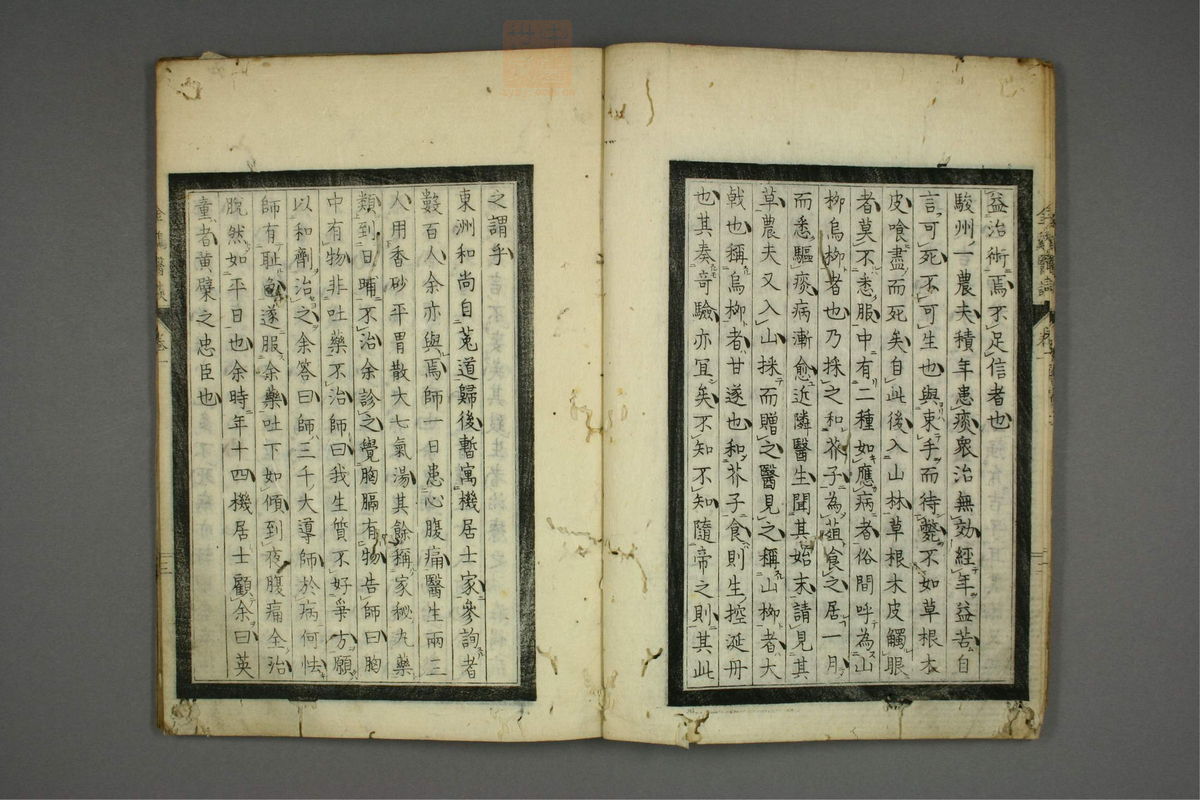 益治術焉不足信者也
駿州一農夫積年患痰衆治無効經年益苦自
言可死不可生也與束手而待斃不如草根木
皮喰盡而死矣自此後入山林草根木皮觸眼
者莫不悉服中有二種如應病者俗間呼為山
柳烏柳者也乃採之和芥子為葅食之居一月
而悉驅痰病漸愈近隣醫生聞其始末請見其
草農夫又入山採而贈之醫見之稱山柳者大
戟也稱烏柳者甘遂也和芥子食則生控涎丹
也其奏奇驗亦冝矣不知不知隨帝之則其此
之謂乎
東洲和尚自莵道歸後暫寓機居士家參詢者
數百人余亦與焉師一日患心腹痛醫生兩三
人用香砂平胃散大七氣湯其餘稱家秘丸藥
類到日晡不治余診之覺胸膈有物告師曰胸
中有物非吐藥不治師曰我生質不好爭方願
以和劑治之余答曰師三千大導師於病何怯
師有耻遂服余藥吐下如傾到夜腹痛全治
脫然如平日也余時年十四機居士顧余曰英
童者黄檗之忠臣也